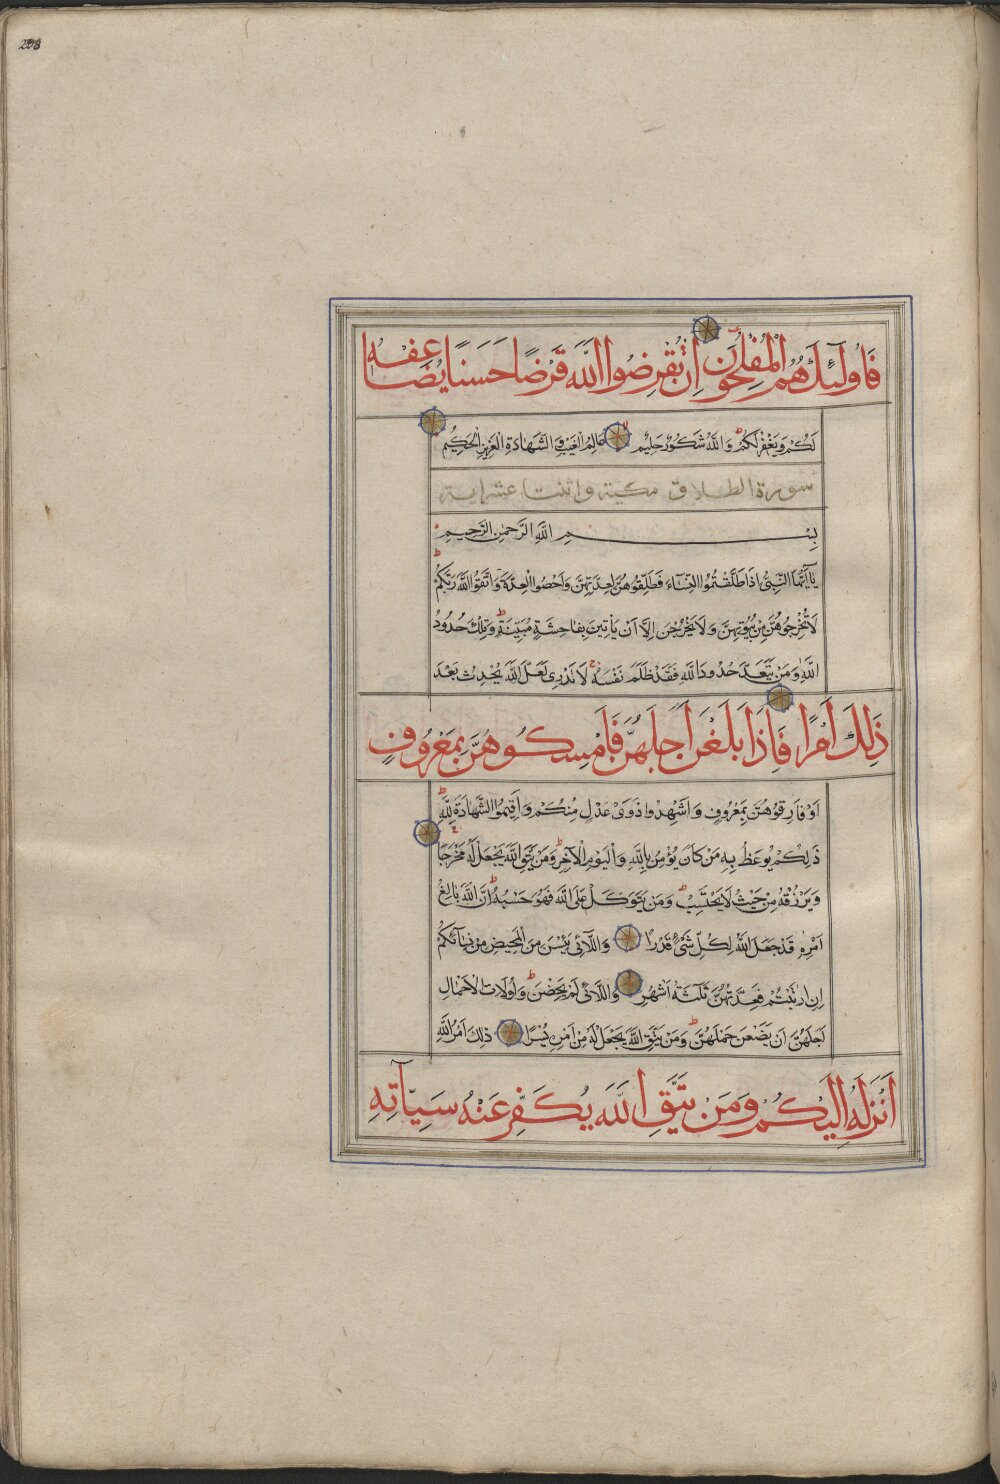 208
فَاُولٰٓئِكَ هُمُ الْمُفْلِحُونَ اِنْ تُقْرِضُوا اللّٰهَ قَرْضًا حَسَنًا يُضَاعِفْهُ
لَكُمْ وَيَغْفِرْ لَكُمْ وَاللّٰهُ شَكُورٌ حَلِيمٌ عَالِمُ الْغَيْبِ وَالشَّهَادَةِ الْعَزِيزُ الْحَكِيمُ
سورة الطلاق مكية واثنتا عشر اية
بِسْمِ اللّٰهِ الرَّحْمٰنِ الرَّحِيمِ
يَا اَيُّهَا النَّبِيُّ اِذَا طَلَّقْتُمُ النِّسَاءَ فَطَلِّقُوهُنَّ لِعِدَّتِهِنَّ وَاَحْصُوا الْعِدَّةَ وَاتَّقُوا اللّٰهَ رَبَّكُمْ
لَا تُخْرِجُوهُنَّ مِنْ بُيُوتِهِنَّ وَلَا يَخْرُجْنَ اِلَّا اَنْ يَأْتِينَ بِفَاحِشَةٍ مُبَيِّنَةٍ وَتِلْكَ حُدُودُ
اللّٰهِ وَمَنْ يَتَعَدَّ حُدُودَ اللّٰهِ فَقَدْ ظَلَمَ نَفْسَهُ لَا تَدْرِى لَعَلَّ اللّٰهَ يُحْدِثُ بَعْدَ
ذٰلِكَ اَمْرًا فَاِذَا بَلَغْنَ اَجَلَهُنَّ فَاَمْسِكُوهُنَّ بِمَعْرُوفٍ
اَوْ فَارِقُوهُنَّ بِمَعْرُوفٍ وَاَشْهِدُوا ذَوَىْ عَدْلٍ مِنْكُمْ وَاَقِيمُوا الشَّهَادَةَ لِلّٰهِ
ذٰلِكُمْ يُوعَظُ بِهِ مَنْ كَانَ يُؤْمِنُ بِاللّٰهِ وَالْيَوْمِ الْاٰخِرِ وَمَنْ يَتَّقِ اللّٰهَ يَجْعَلْ لَهُ مَخْرَجًا
وَيَرْزُقْهُ مِنْ حَيْثُ لَا يَحْتَسِبُ وَمَنْ يَتَوَكَّلْ عَلَى اللّٰهِ فَهُوَ حَسْبُهُ اِنَّ اللّٰهَ بَالِغُ
اَمْرِهِ قَدْ جَعَلَ اللّٰهُ لِكُلِّ شَىْءٍ قَدْرًا وَاللَّائِى يَئِسْنَ مِنَ الْمَحِيضِ مِنْ نِسَائِكُمْ
اِنِ ارْتَبْتُمْ فَعِدَّتُهُنَّ ثَلٰثَةُ اَشْهُرٍ وَاللَّائِى لَمْ يَحِضْنَ وَاُولَاتُ الْاَحْمَالِ
اَجَلُهُنَّ اَنْ يَضَعْنَ حَمْلَهُنَّ وَمَنْ يَتَّقِ اللّٰهَ يَجْعَلْ لَهُ مِنْ اَمْرِهِ يُسْرًا ذٰلِكَ اَمْرُ اللّٰهِ
اَنْزَلَهُ اِلَيْكُمْ وَمَنْ يَتَّقِ اللّٰهَ يُكَفِّرْ عَنْهُ سَيِّاٰتِهِ